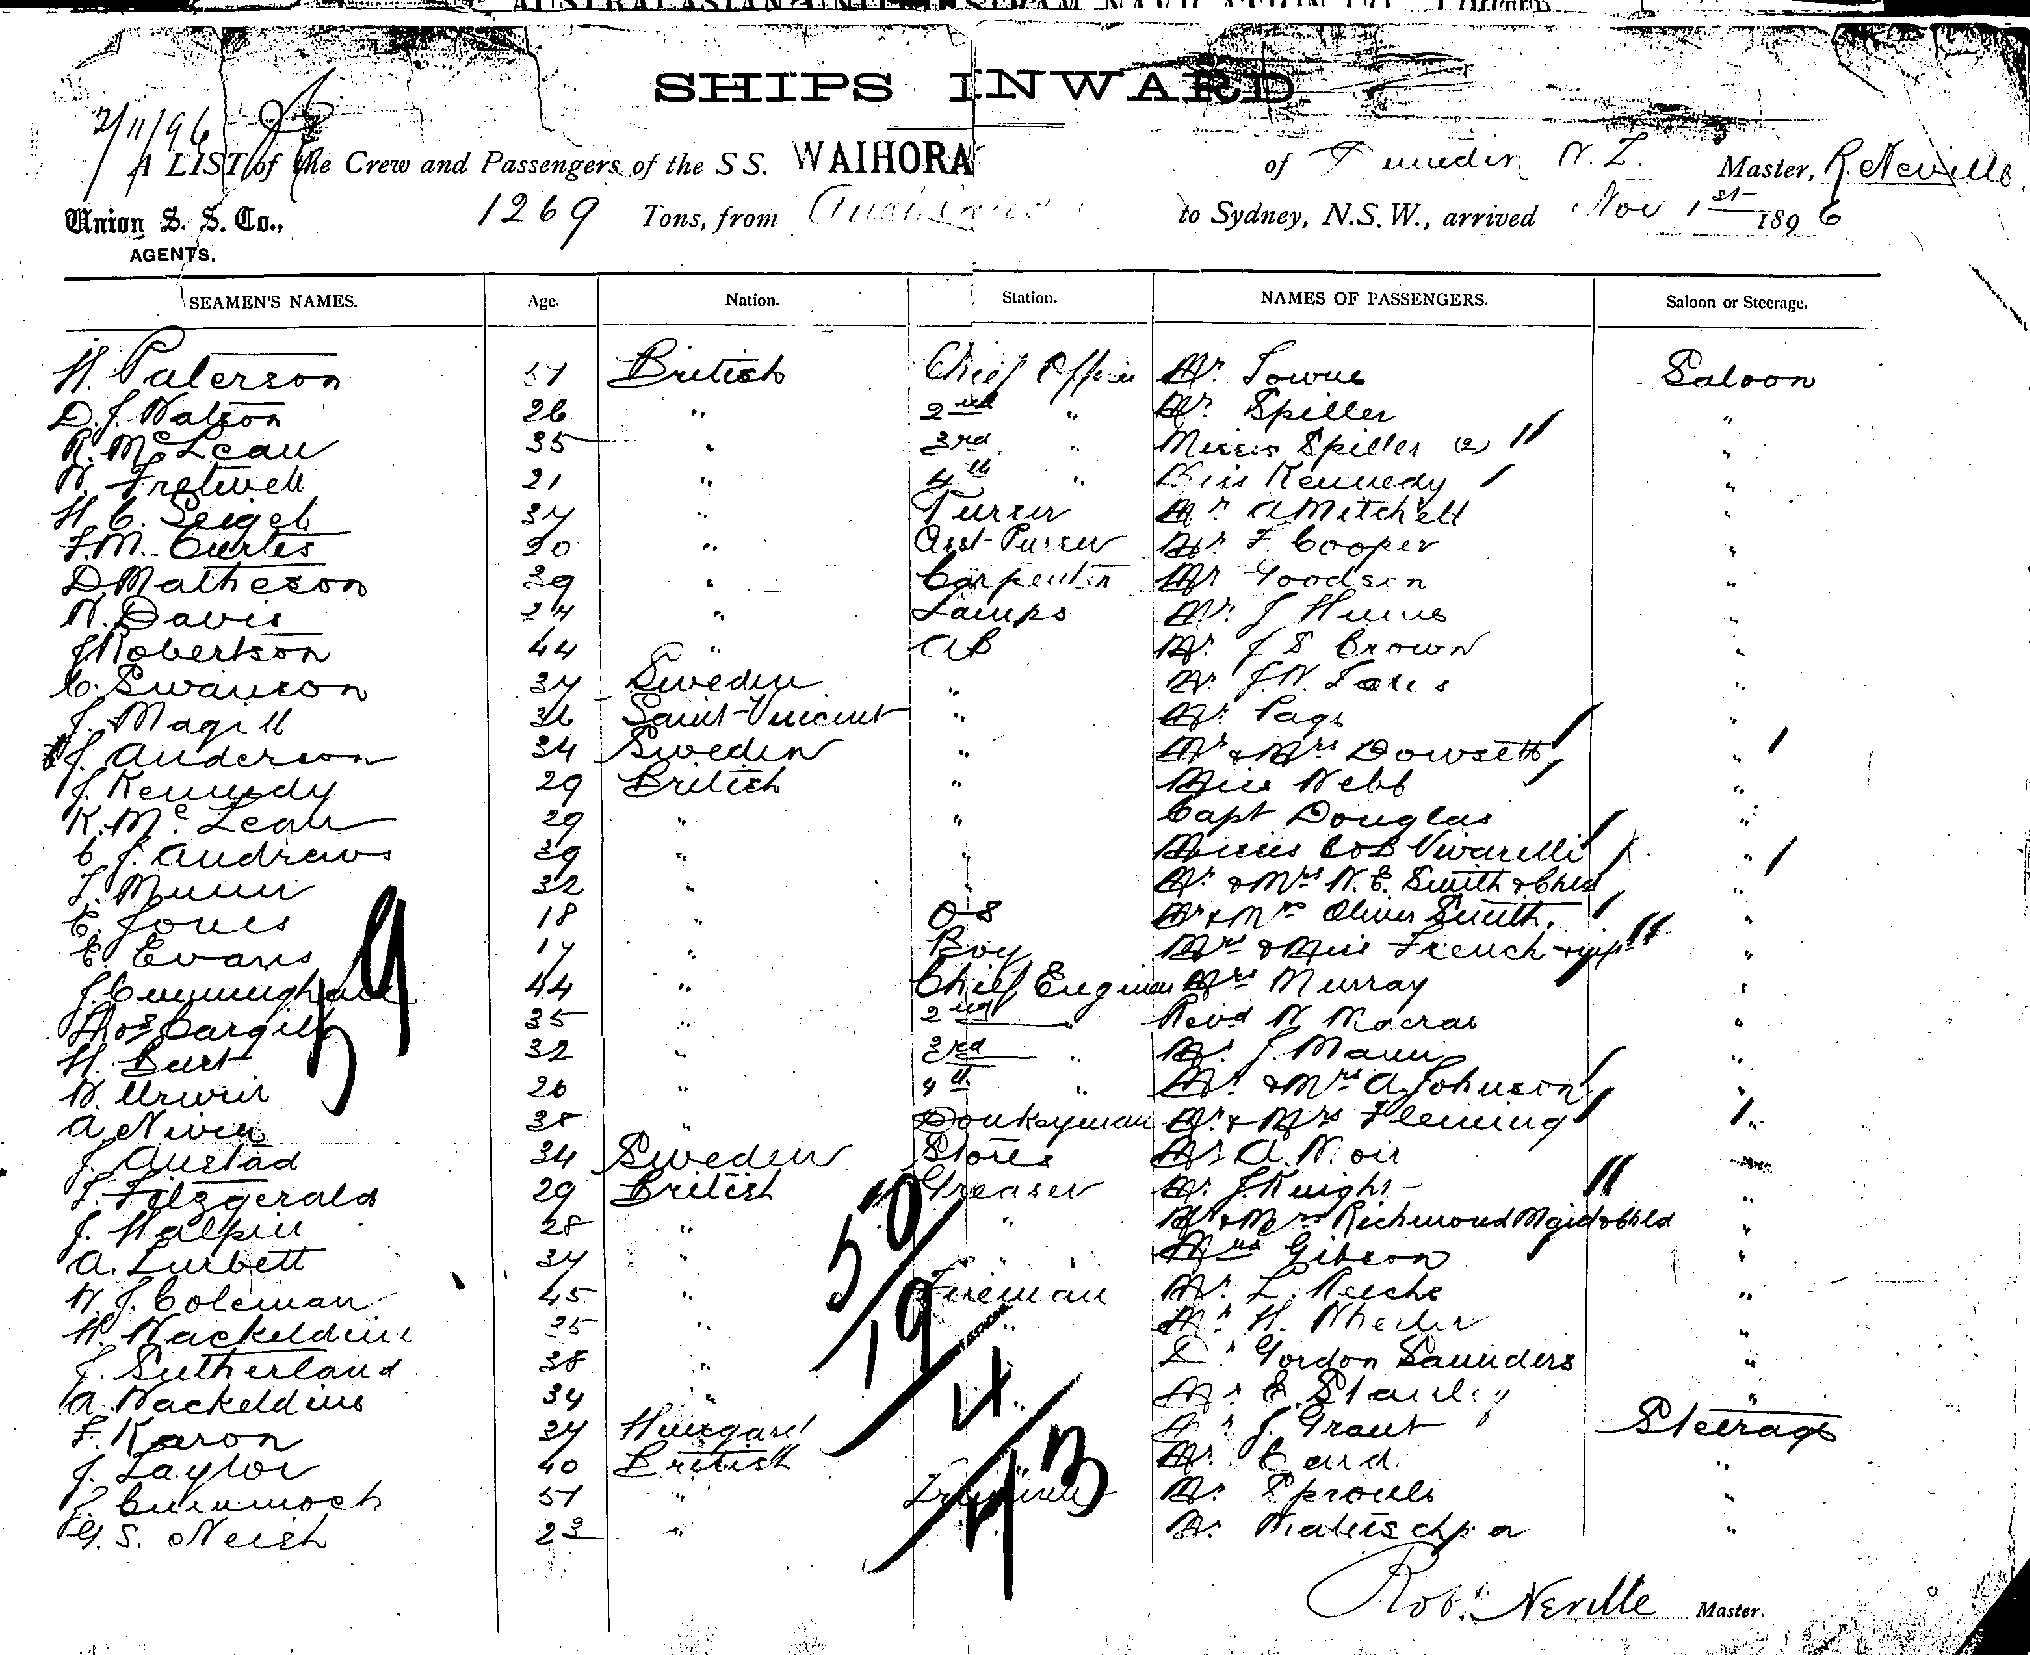 SHIPS INWARD
2/11/96
A LIST of the Crew and Passengers of the SS. WAIHORA of Dunedin N.Z. Master, R. Neville
Union S. S. Co., 1269 Tons, from to Sydney, N.S.W., arrived Nov 1st 1896
AGENTS.
SEAMEN'S NAMES. Age. Nation. Station. NAMES OF PASSENGERS. Saloon or Steerage.
H. Paterson 51 British Chief Officer Mr. Towne Saloon
D. J. Watson 26 " 2nd " Mr. Spiller "
R. McLean 35 " 3rd " Misses Spiller (2) "
W. Fretwell 21 " 4th " Miss Kennedy "
H. C. Seigel 37 " Purser Mr. A Mitchell "
F. M. Curtis 20 " Asst Purser Mr. F. Cooper "
D. Matheson 39 " Carpenter Mr Goodson "
W. Davis 24 " Lamps Mr. J "
J Robertson 44 " AB Mr. J S Brown "
C. Swanson 37 Sweden " Mr. J. W. "
J. Magill 36 Saint Vincent " Mr. Page "
J. Anderson 34 Sweden " Mr & Mrs Dowsett "
J. Kennedy 29 British " Miss Webb "
K. McLean 29 " " Capt Douglas "
C J. Andrews 39 " " Misses Vivarelli "
T. Munn 32 " " Mr & Mrs W. E. Smith & Chld
E. Jones 18 " OS Mr & Mrs Oliver Smith. "
E. Evans 17 " Boy Mrs & Miss French "
J. Cunningham 44 " Chief Engineer Mrs Murray "
Thos Cargill 35 " 2nd " Revd W Macrae "
H. Burt 32 " 3rd " Mr. J. Mann "
W. Urwin 26 " 4th " Mr & Mrs A. Johnson "
A Niven 38 " Donkeyman Mr & Mrs Fleming "
J. Austad 34 Sweden Stores Mr A. Moir "
T. Fitzgerald 29 British Greaser Mr. J Knight "
J. Halpin 28 " " Mr & Mrs Richmond Maid & Chld "
A. Lurbett 37 " " Mrs Gibson "
W. J. Coleman 45 " Fireman Mr. L. "
H. Wackeldine 25 " " Mr H. Wheeler "
J. Sutherland 38 " Dr Gordon Saunders "
A. Wackeldine 34 " Mr E. Stanley "
F. Karon 27 " J. Grant Steerage
J. Taylor 40 British Mr. Card "
51 " Trimmer Mr. Sproule "
G. S. Neish 23 " Mr. "
59
50
19
4
Robt. Neville Master.